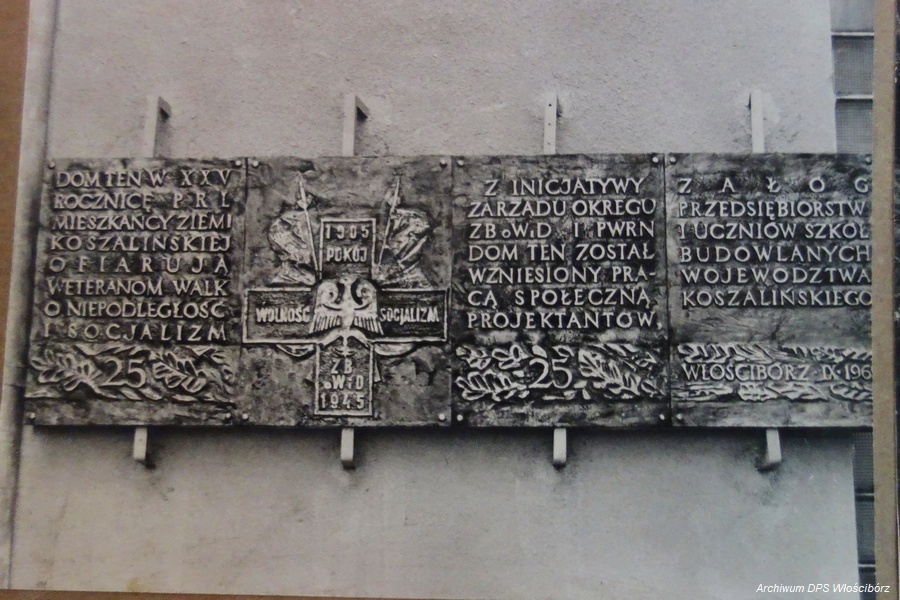 DOM TEN W XXV
ROCZNICĘ PRL
MIESZKAŃCY ZIEMI
KOSZALIŃSKIEJ
OFIARUJĄ
WETERANOM WALK
O NIEPODLEGŁOŚĆ
I SOCJALIZM
25
1905
POKÓJ
WOLNOŚĆ SOCJALIZM
ZB
oWiD
1945
Z INICJATYWY
ZARZĄDU OKREGU
ZBoWiD I PWRN
DOM TEN ZOSTAŁ
WZNIESIONY PRA-
CĄ SPOŁECZNĄ
PROJEKTANTÓW,
25
ZAŁOG
PRZEDSIĘBIORSTW
I UCZNIÓW SZKÓŁ
BUDOWLANYCH
WOJEWÓDZTWA
KOSZALIŃSKIEGO
WŁOŚCIBÓRZ IX 196
Archiwum DPS Włościbórz